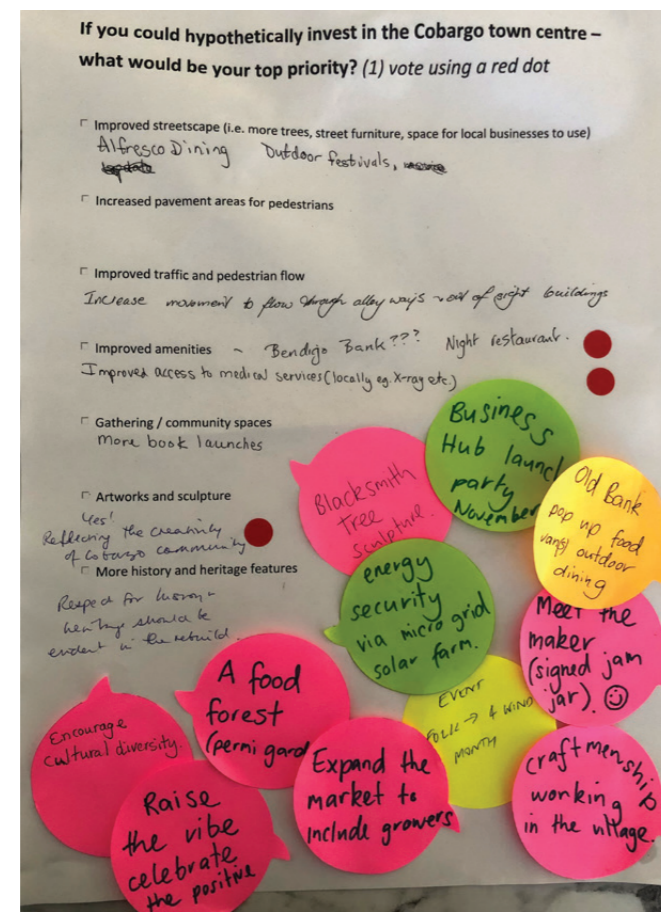 If you could hypothetically invest in the Cobargo town centre –
what would be your top priority? (1) vote using a red dot
Improved streetscape (i.e. more trees, street furniture, space for local businesses to use)
Alfresco Dining Outdoor festivals,
Increased pavement areas for pedestrians
Improved traffic and pedestrian flow
Increase movement to flow through alley ways out of sight buildings
Improved amenities - Bendigo Bank??? Night restaurant.
Improved access to medical services (locally eg. X-ray etc.)
Gathering / community spaces
More book launches
Artworks and sculpture
Yes!
Reflecting the creativity
of Cobargo community
More history and heritage features
Respect for history
heritage should be
evident in the rebuild.
Business
Hub launch
party
November
Blacksmith
Tree
Sculpture.
Old Bank
pop up food
vans/ outdoor
dining
energy
security
via micro grid
solar farm.
Meet the
maker
(signed jam
jar).
A food
forest
(permi gard
EVENT
FOLK → 4 WIND
MONTH
Encourage
cultural diversity.
Expand the
market to
include growers
craftmenship
working
in the village.
Raise
the vibe
celebrate
the positive